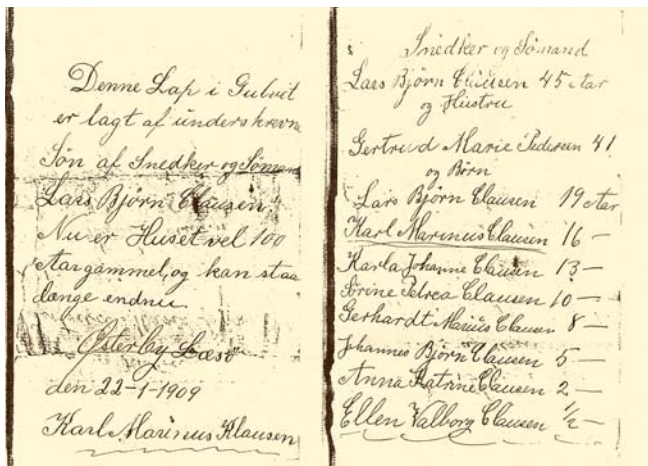 Denne Lap i Gulvet
er lagt af underskrevne
Søn af Snedker og Sømand
Lars Bjørn Clausen.
Nu er Huset vel 100
Aar gammel, og kan staa
længe endnu.
Østerby Læsø
den 22-1-1909
Karl Marinus Klausen
Snedker og Sømand
Lars Bjørn Clausen 45 Aar
og Hustru
Gertrud Marie Pedersen 41
og Børn
Lars Bjørn Clausen 19 Aar
Karl Marinus Clausen 16 —
Karla Johanne Clausen 13 —
Sørine Petrea Clausen 10 —
Gerhardt Marius Clausen 8 —
Johannes Bjørn Clausen 5 —
Anna Katrine Clausen 2 —
Ellen Valborg Clausen ½ —